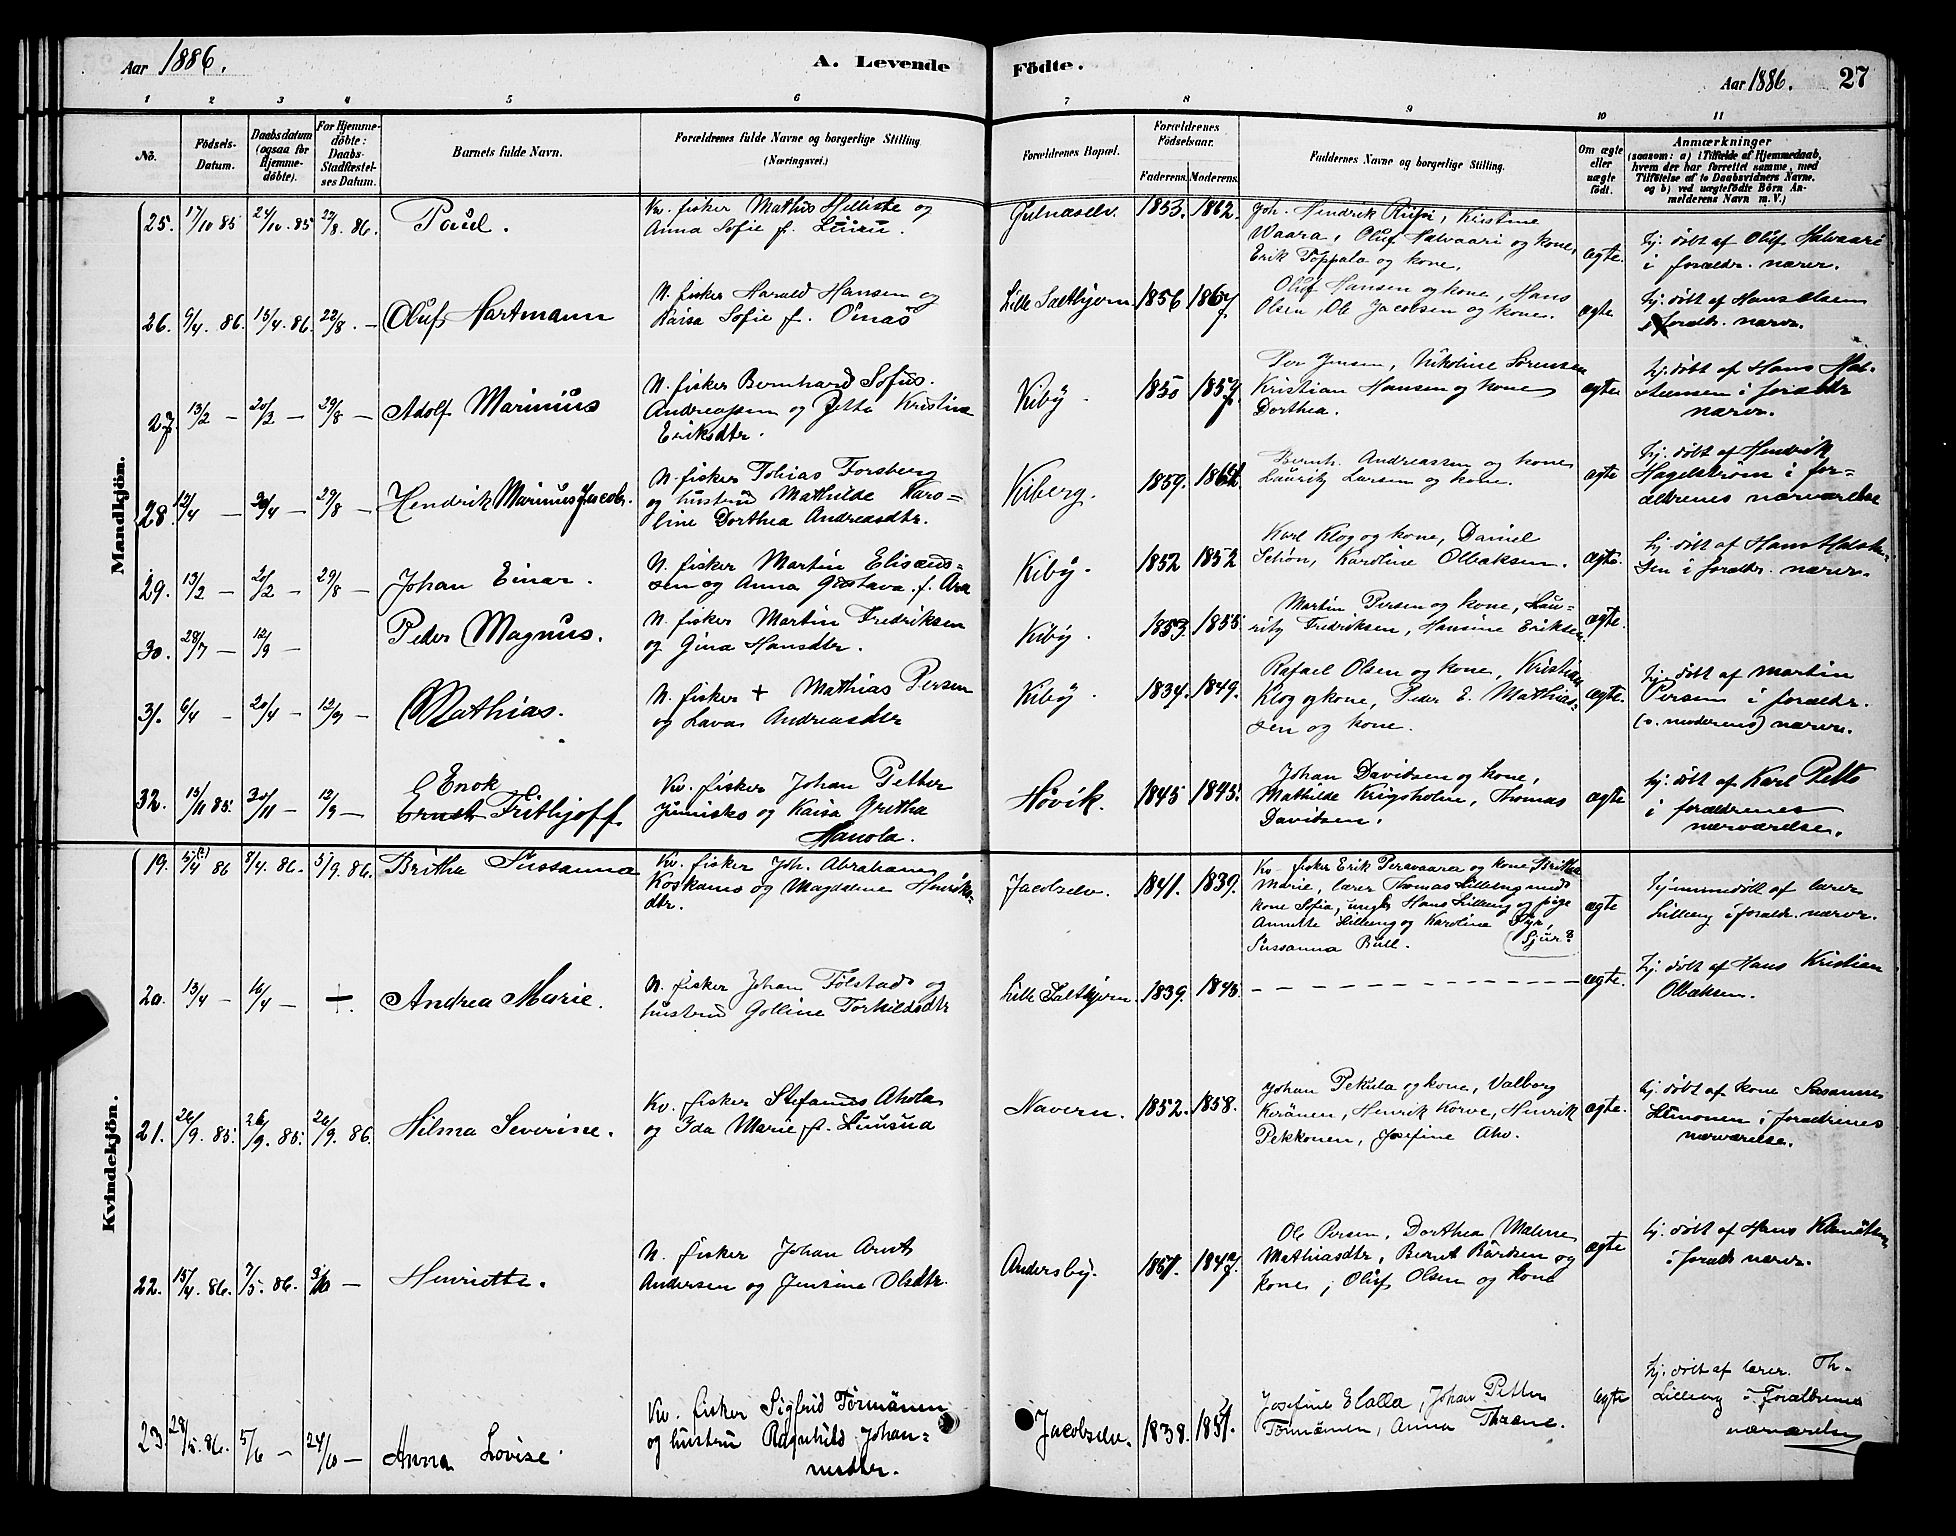 Aar 1886.
A. Levende Födte.
Aar 1886. 27
1 2 3 4 5 6 7 8 9 10 11
No.
Födsels-Datum.
Daabsdatum (ogsaa for Hjemme-döbte).
For Hjemme-döbte: Daabs-Stadfæstel-ses Datum.
Barnets fulde Navn.
Forældrenes fulde Navne og borgerlige Stilling.
(Næringsvei.)
Forældrenes Bopæl.
Forældrenes Födselsaar.
Faderens. Moderens.
Faddernes Navne og borgerlige Stilling.
Om ægte eller uægte födt.
Anmærkninger
(saasom: a) i Tilfælde af Hjemmedaab, hvem der har forrettet samme, med Tilföielse af to Daabsvidners Navne. og b) ved uægtefödte Börn An-melderens Navn m. V.)
Mandkjön.
25. 17/10 85 24/10. 85 22/8. 86. Paul.
Kv. fisker Mathis Helliste og
Anna Sofie f.
1853. 1862.
Joh. Hendrik, Kristine
Waara, Oluf Halvaari og kone,
Erik Poppala og kone.
ægte.
hj. döbt af Oluf Halvaari
i forældr. nærv.
26. 9/4. 86. 15/4. 86. 22/8. — Oluf Hartmann
N. fisker Harald Hansen og
Kaisa Sofie f. Oinas
Lille Salthjern 1856 1867.
Oluf Hansen og kone, Hans
Olsen, Ole Jacobsen og kone.
ægte
hj. döbt af Hans Olsen
i forældr. nærv.
27. 13/2 — 20/2 — 29/8 — Adolf Marinius
N. fisker Bernhard Sofus
Andreassen og Petta Kristine
Eriksdtr.
Kiby. 1850 1857.
Per Jensen, Nikoline Sörensen
Kristian Hansen og kone
Dorthea.
ægte
hj. döbt af Hans Hal-
stensen i forældr
nærv.
28. 12/4 — 20/4 — 29/8 — Hendrik Marinius Jacob.
N. fisker Tobias Forsberg
og hustru Mathilde Karo-
line Dorthea Andreasdtr.
Kiberg. 1859.
Bernh. Andreassen og kone
Lauritz Larsen og kone.
ægte
hj. döbt af Hendrik
Hagelström i for-
ældrenes nærværelse
29. 13/2 — 20/2 — 29/8 — Johan Einar.
N. fisker Martin Elisæus-
sen og Anna Gustava f. Ara
Kiby. 1852 1852
Karl Klog og kone, Daniel
Schön, Karoline Olbaksen.
ægte.
hj. döbt af Hans Halsten-
sen i forældr. nærv.
30. 28/7 — 12/9 — Peder Magnus.
N. fisker Martin Fredriksen
og Gina Hansdtr.
Kiby. 1853. 1855.
Martin Persen og kone, Lau-
ritz Fredriksen, Hansine Eriksen.
ægte.
31. 6/4 — 20/4 — 12/9 — Mathias.
N. fisker + Mathias Persen
og Lava Andreasdtr
Kiby. 1834. 1849.
Rafael Olsen og kone, Kristian
Klog og kone, Peder E. Mathias-
sen og kone.
ægte.
hj. döbt af Martin
Persen i forældr.
(o: moderens) nærv.
32. 15/11 85. 30/11 — 12/9 — Enok
Ernst Frithjoff
Kv. fisker Johan Petter
Junisko og Kaisa Gretha
Hanola.
Hövik. 1845 1845.
Johan Davidsen og kone,
Mathilde Krigsholm, Thomas
Davidsen.
ægte
hj. döbt af Karl Petto
i forældrenes
nærværelse.
Kvindekjön.
19. 5/4(?) 86 8/4. 86. 5/9. 86. Britha Sussanna
Kv. fisker Joh. Abrahams
Koskamo og Magdalena Henriks-
dtr.
Jacobselv. 1841. 1839.
Kv. fisker Erik Peravaara og kone Britha
Marie, lærer Thomas Lilleeng med
kone Sofia, ungk. Hans Lilleeng og pige
Annette Lilleeng og Karoline Syr,
Sussanna Bull. (Sjur?
ægte
hjemmedöbt af lærer
Lilleeng i forældr. nærv.
20. 13/4 — 16/4 — + Andrea Marie.
N. fisker Johan Tölstad og
hustru Golline Torkildsdtr
Lille Saltkjern. 1839. 1843
ægte.
hj. döbt af Hans Kristian
Olbaksen.
21. 26/9. 85. 26/9. 85. 26/9. 86. Hilma Severine.
Kv. fisker Stefanus Ahola
og Ida Marie f.
Navern. 1852. 1858.
Johan Pekula og kone, Valborg
Keränen, Henrik Korve, Henrik
Pekkonen, Josefine Aho.
ægte.
hj. döbt af kone Susanne
i forældrenes
nærværelse.
22. 15/4. 86. 7/5. 86. 3/10 — Henriette.
N. fisker Johan Arnt
Andersen og Jensine Olsdtr.
Andersby. 1851. 1847.
Ole Persen, Dorthea Malene
Mathiasdtr, Bernt Bårdsen og
kone, Oluf Olsen og kone
ægte
hj. döbt af Hans Klemetsen
i forældr nærv.
23. 28/5. 86. 5/6 — 24/10 — Anna Lovise.
Kv. fisker Sigfrid Törmänen
og hustru Ragnhild Johan-
nesdtr.
Jacobselv. 1838. 1851.
Josefine Elalla, Johan Petter
Törmänen, Anna Thrane.
ægte
hj. döbt af lærer Th.
Lilleeng i Forældrenes
nærværelse